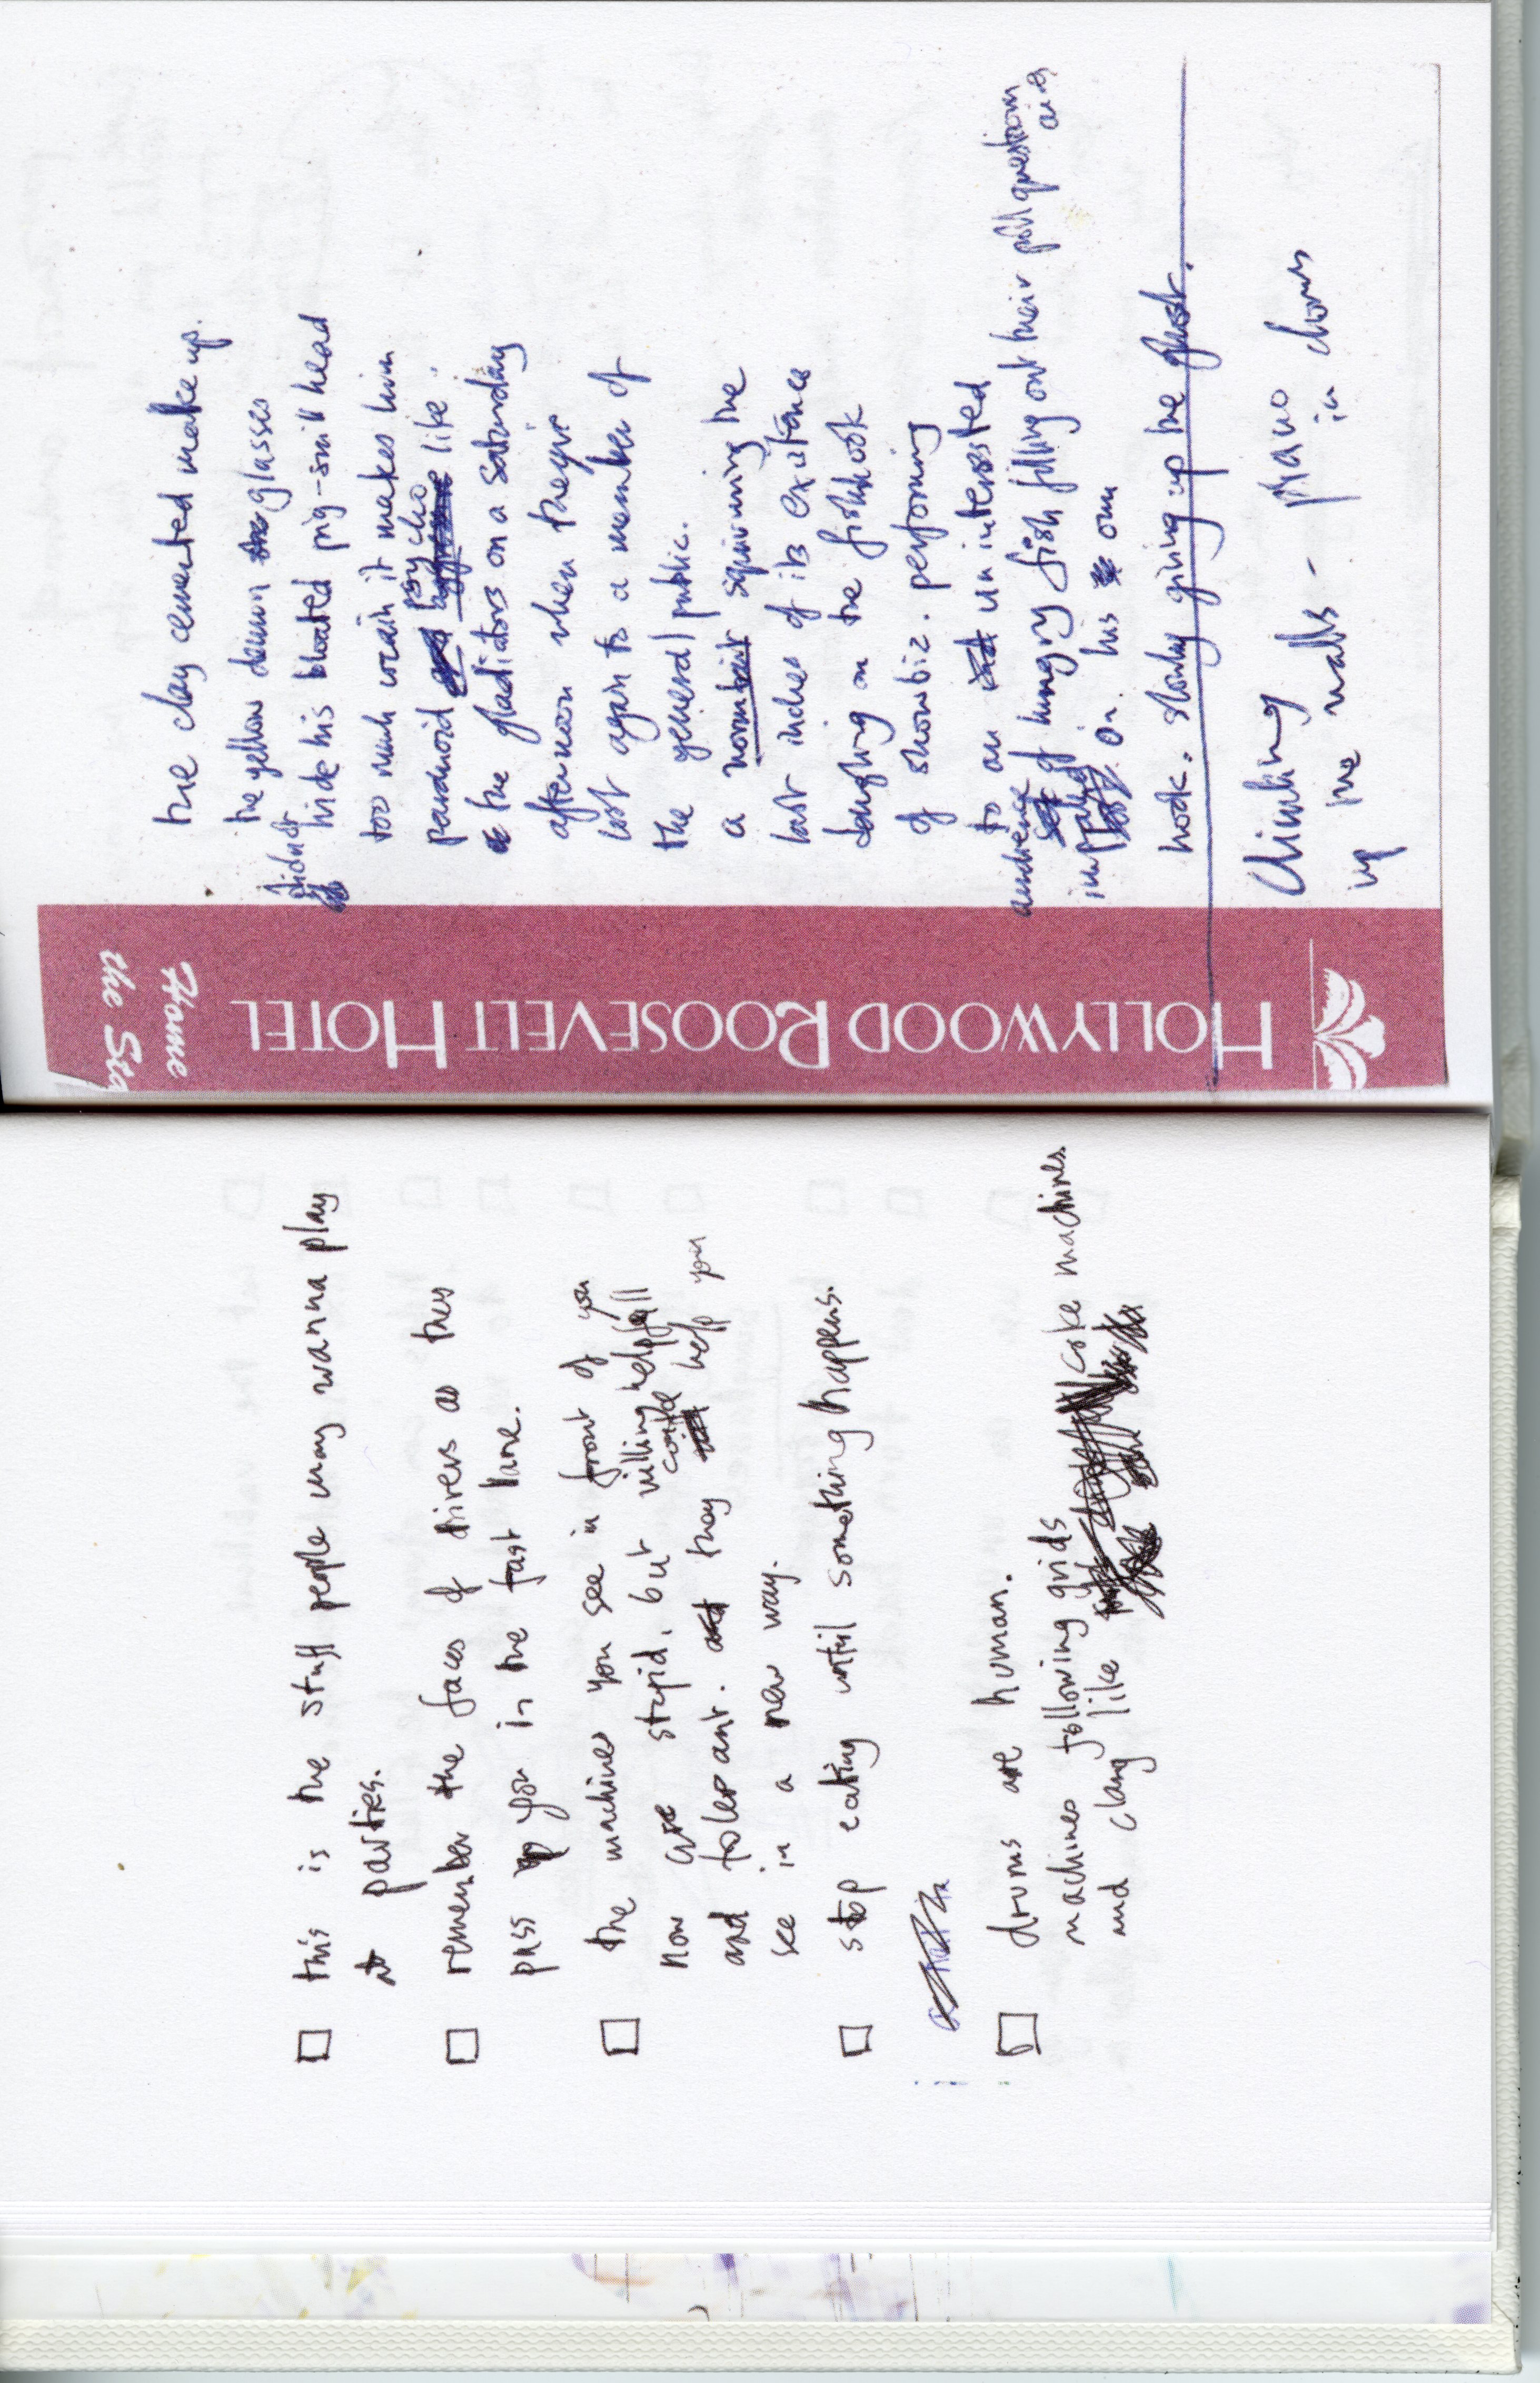 this is the stuff people may wanna play
at parties.
remember the faces of drivers as they
pass you in the fast lane.
the machines you see in front of you
now are stupid, but willing helpful
and tolerant. they could help you
see in a new way.
stop eating until something happens.
drums are human.
machines following grids
and clang like coke machines.
Home
the Sta
HOLLYWOOD ROOSEVELT HOTEL
the clay cemented make up.
the yellow demon glasses
didnt hide his bloated pig-snill head
too much cocain it makes him
paranoid psycho like
the gladiators on a saturday
afternoon when theyir
lost again to a member of
the general public.
a squirming the
last inches of its existance
laughing on the fishhook
of showbiz. performing
to an uninterested
audience of hungry fish filling out their poll questionn
impaled on his own
hook. slowly giving up the ghost.
Climbing
up the walls - piano
in